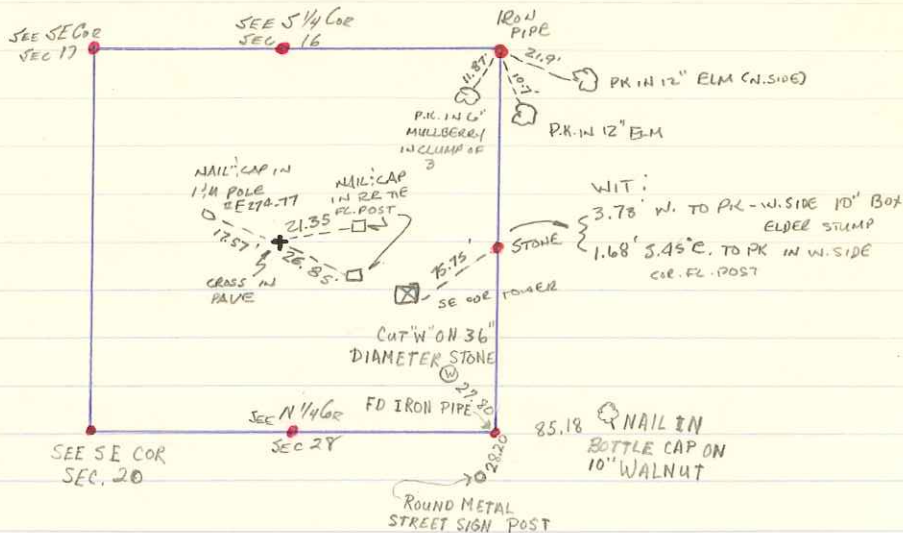 SEE SE COR
SEC 17
SEE S 1/4 COR
SEC 16
IRON
PIPE
11.87'
10.7'
21.9'
PK IN 12" ELM (N.SIDE)
P.K. IN 12" ELM
P.K. IN 6"
MULLBERRY
IN CLUMP OF
3
NAIL & CAP IN
I&M POLE
ZE274-77
NAIL & CAP
IN RR TIE
FC. POST
17.57'
21.35
26.85'
CROSS IN
PAVE
WIT:
3.78' W. TO PK - W.SIDE 10" BOX
ELDER STUMP
1.68' S.45°E. TO PK IN W.SIDE
COR. FC. POST
STONE
75.75'
SE COR TOWER
CUT "W" ON 36"
DIAMETER STONE
W
27.80
FD IRON PIPE
SEE SE COR
SEC. 20
SEE N 1/4 COR
SEC 28
85.18
NAIL IN
BOTTLE CAP ON
10" WALNUT
28.20
ROUND METAL
STREET SIGN POST